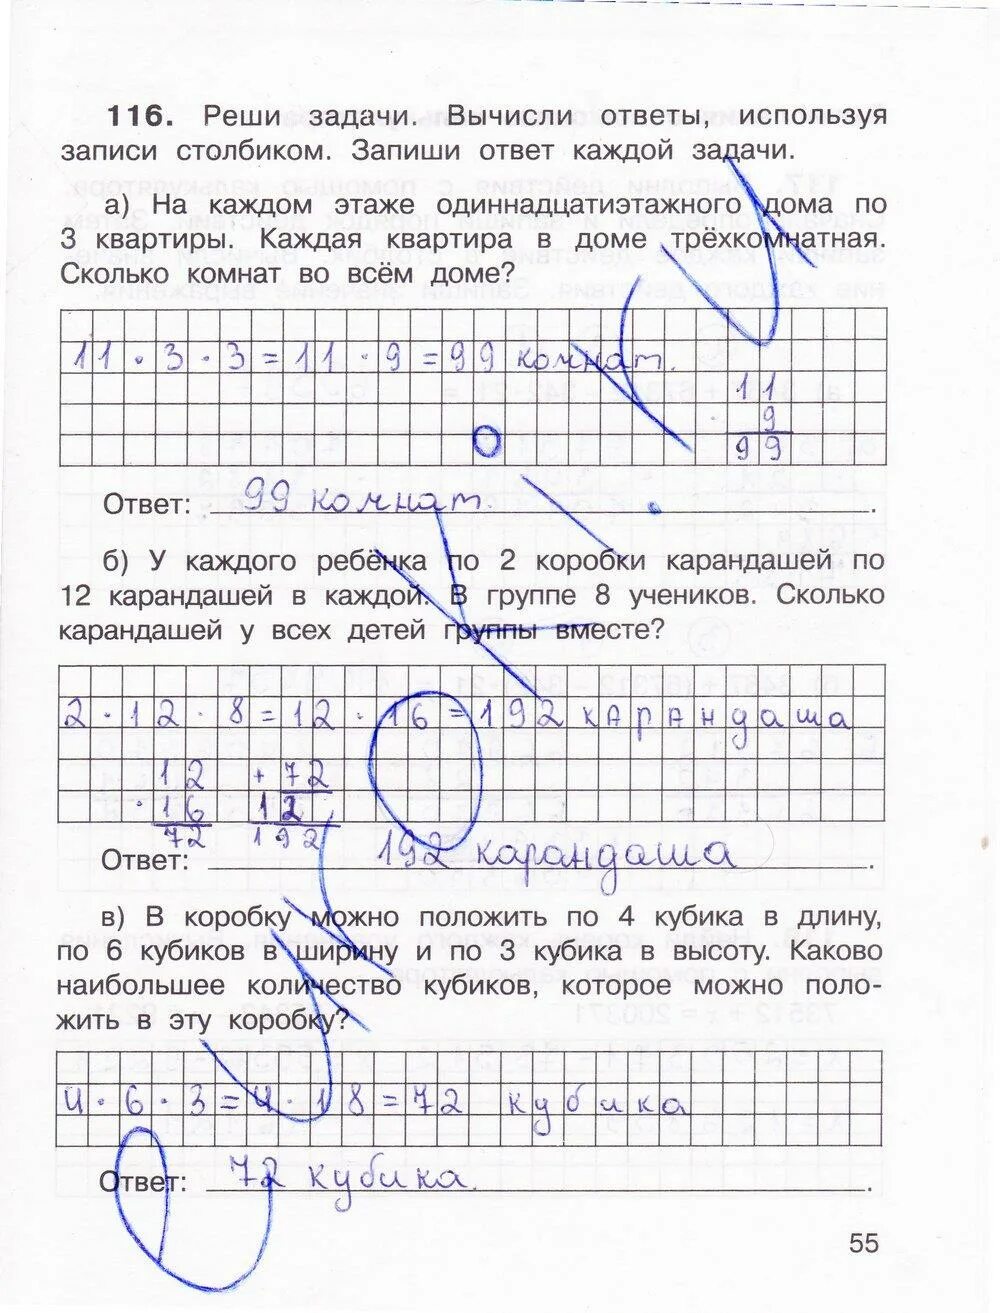 116. Реши задачи. Вычисли ответы, используя
записи столбиком. Запиши ответ каждой задачи.
а) На каждом этаже одиннадцатиэтажного дома по
3 квартиры. Каждая квартира в доме трёхкомнатная.
Сколько комнат во всём доме?
11 · 3 · 3 = 11 · 9 = 99 комнат.
11
· 9
99
Ответ: 99 комнат.
б) У каждого ребёнка по 2 коробки карандашей по
12 карандашей в каждой. В группе 8 учеников. Сколько
карандашей у всех детей группы вместе?
2 · 12 · 8 = 12 · 16 = 192 карандаша
12 + 72
· 16 12
72 192
Ответ: 192 карандаша.
в) В коробку можно положить по 4 кубика в длину,
по 6 кубиков в ширину и по 3 кубика в высоту. Каково
наибольшее количество кубиков, которое можно поло-
жить в эту коробку?
4 · 6 · 3 = 4 · 18 = 72 кубика
Ответ: 72 кубика.
55